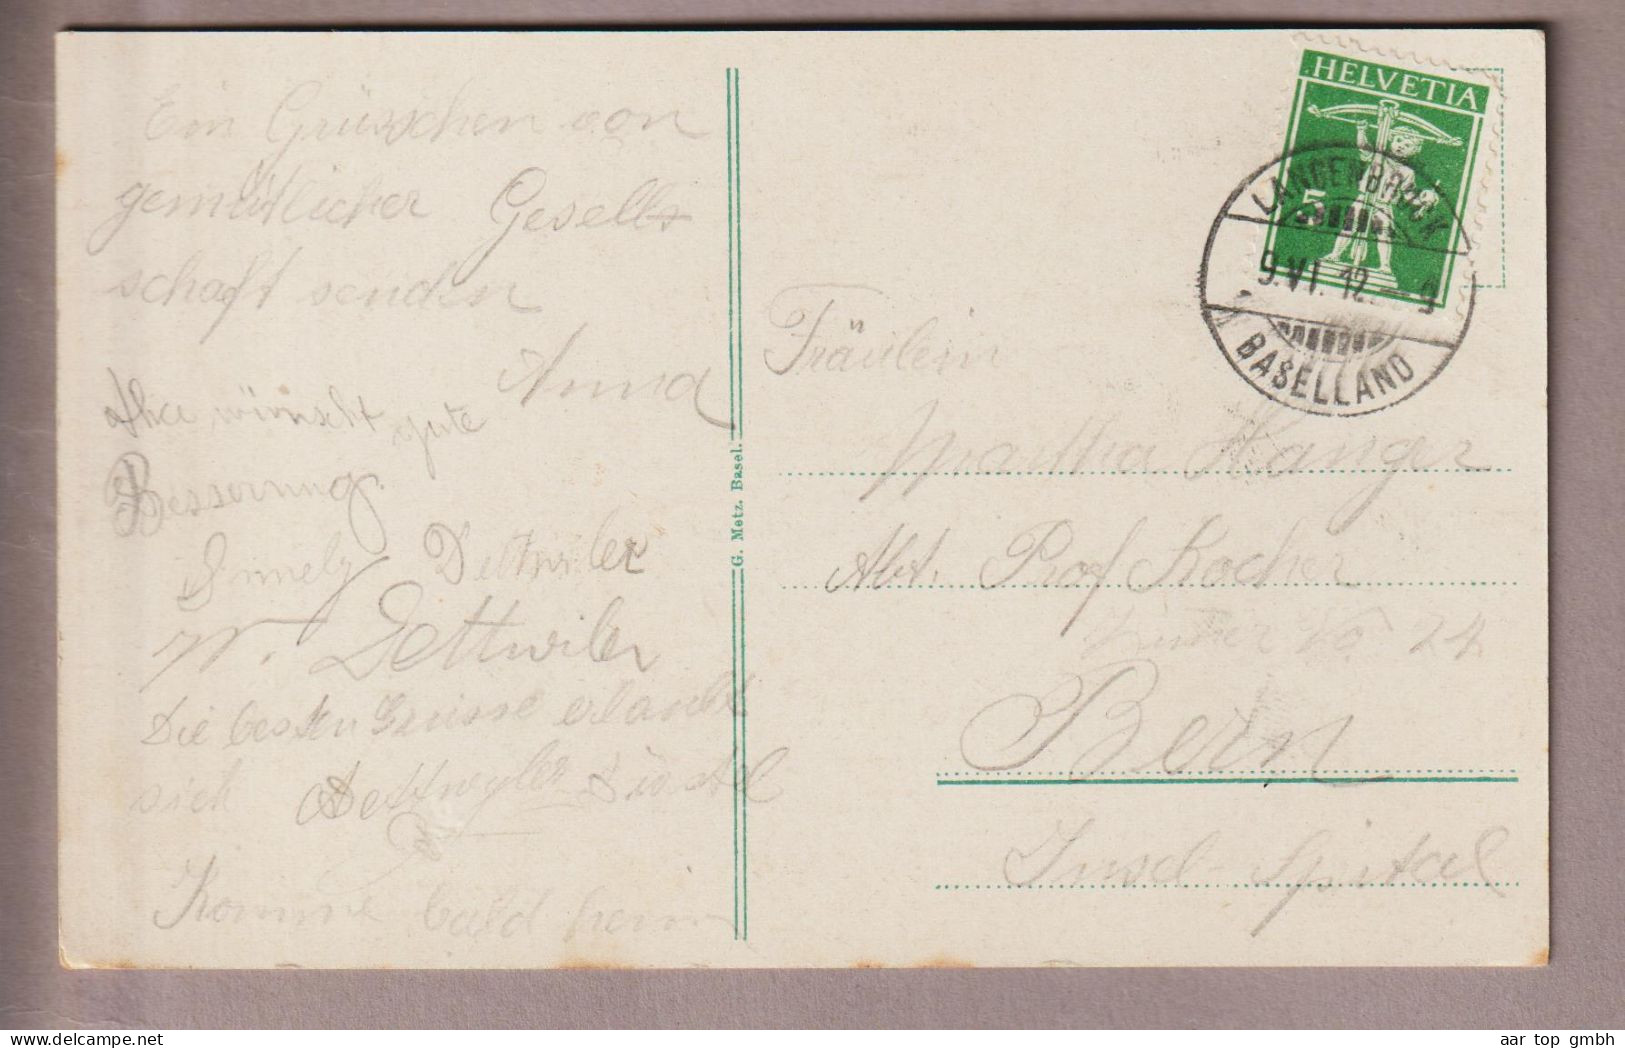 Ein Grüsschen von
gemütlicher Gesell-
schaft senden
Anna
Alice wünscht gute
Besserung.
Dettwiler
W. Dettwiler
Die besten Grüsse erlaubt
sich Dettwyler
Komme bald heim
G. Metz. Basel.
HELVETIA
5
LANGENBRUCK
9.VI.12.–9
BASELLAND
Fräulein
Martha Hanger
Abt. Prof Kocher
Zimmer No 24
Bern
Insel-Spital
aar top gmbh